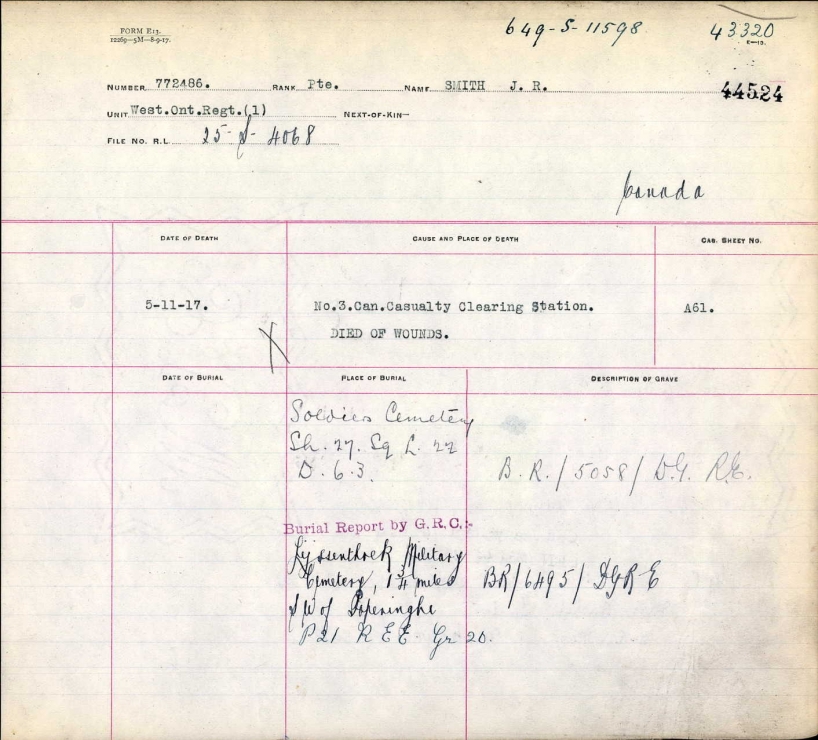 FORM E13.
12269—5M—8-9-17.
649-S-11598
43320
E—13.
NUMBER 772486. RANK Pte. NAME SMITH J. R.
44524
UNIT West.Ont.Regt.(1) NEXT-OF-KIN—
FILE NO. R.L. 25-S-4068
Canada
DATE OF DEATH CAUSE AND PLACE OF DEATH CAS. SHEET NO.
5-11-17. No.3.Can.Casualty Clearing Station. A61.
DIED OF WOUNDS.
DATE OF BURIAL PLACE OF BURIAL DESCRIPTION OF GRAVE
Soldiers Cemetery
Sh. 27. Sq L. 22
D. 6.3. B.R./5058/D.G. R.E.
Burial Report by G.R.C.:-
Lyssenthoek Military
Cemetery, 1 3/4 miles BR/6495/DGRE
S W of Poperinghe
P21 R E E Gr 20.